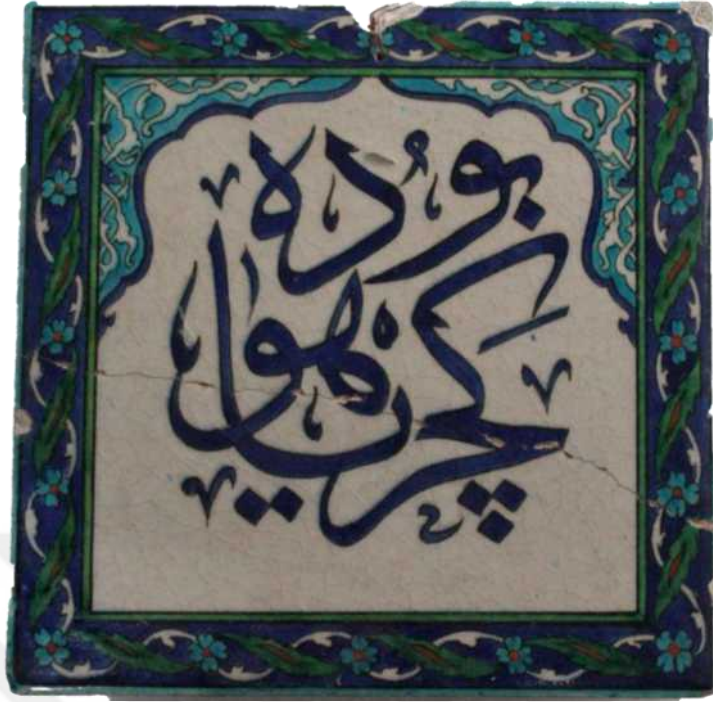 بو ده
كچر يا هو